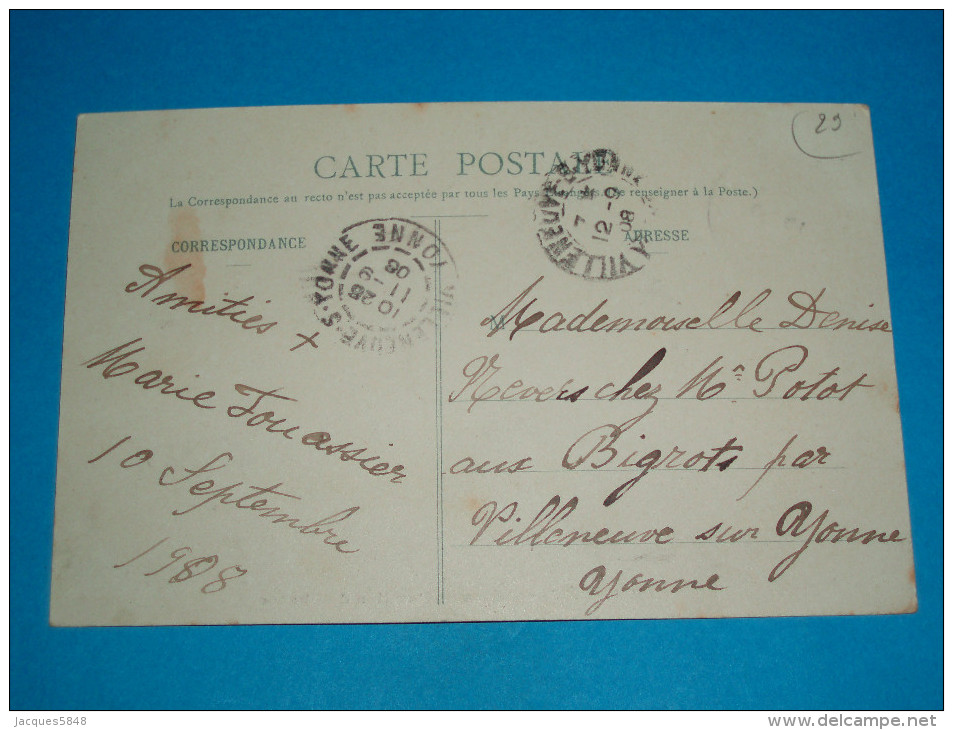 29
CARTE POSTALE
La Correspondance au recto n'est pas acceptée par tous les Pays Étrangers (Se renseigner à la Poste.)
CORRESPONDANCE
ADRESSE
VILLENEUVE-S-YONNE YONNE
10 25
11 -9
08
7
12 -9
08
Amitiés +
Marie Fouassier
10 Septembre
1908
M
Mademoiselle Denise
Nevers chez Mr Potot
aux Bigrots par
Villeneuve sur Yonne
Yonne
Jacques5848
www.delcampe.net